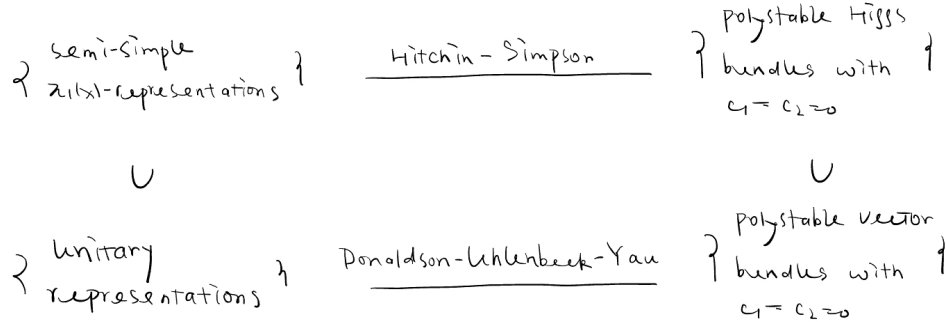 { semi-simple π₁(X)-representations } Hitchin-Simpson { polystable Higgs bundles with c₁ = c₂ = 0 }
∪ ∪
{ unitary representations } Donaldson-Uhlenbeck-Yau { polystable vector bundles with c₁ = c₂ = 0 }